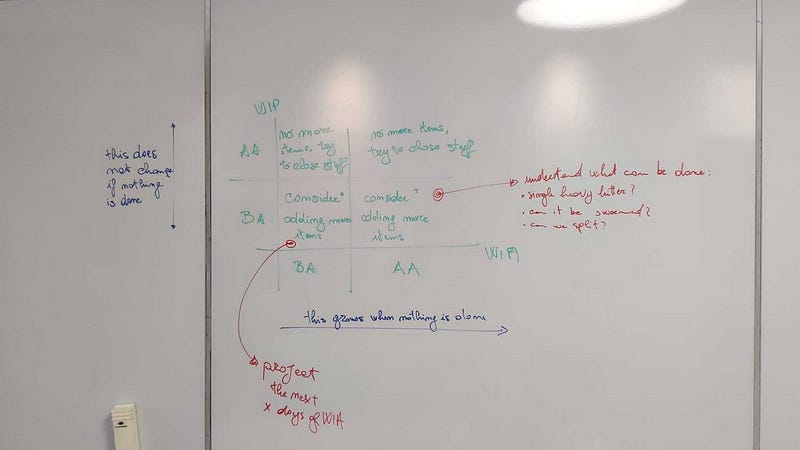 WIP
AA
no more
items, try
to close stuff
no more items,
try to close stuff
BA
consider *
adding more
items
consider +
adding more
items
BA
AA
WIA
this does
not change
if nothing
is done
this grows when nothing is done
understand what can be done:
• single heavy hitter?
• can it be swarmed?
• can we split?
project
the next
x days of WIA